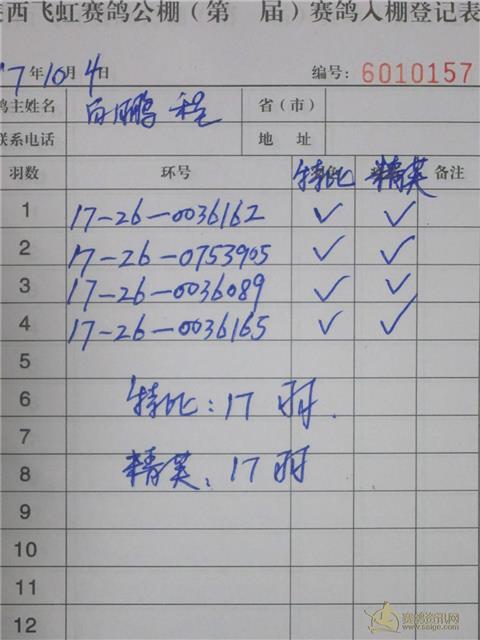 西飞虹赛鸽公棚（第 届）赛鸽入棚登记表
17年10月4日 编号：6010157
鸽主姓名 白鹏程 省（市）
联系电话 地 址
羽数 环号 特比 精英 备注
1 17-26-0036162 ✓ ✓
2 17-26-0753905 ✓ ✓
3 17-26-0036089 ✓ ✓
4 17-26-0036165 ✓ ✓
5
6 特比：17羽.
7
8 精英：17羽
9
10
11
12
赛鸽资讯网
www.saige.com